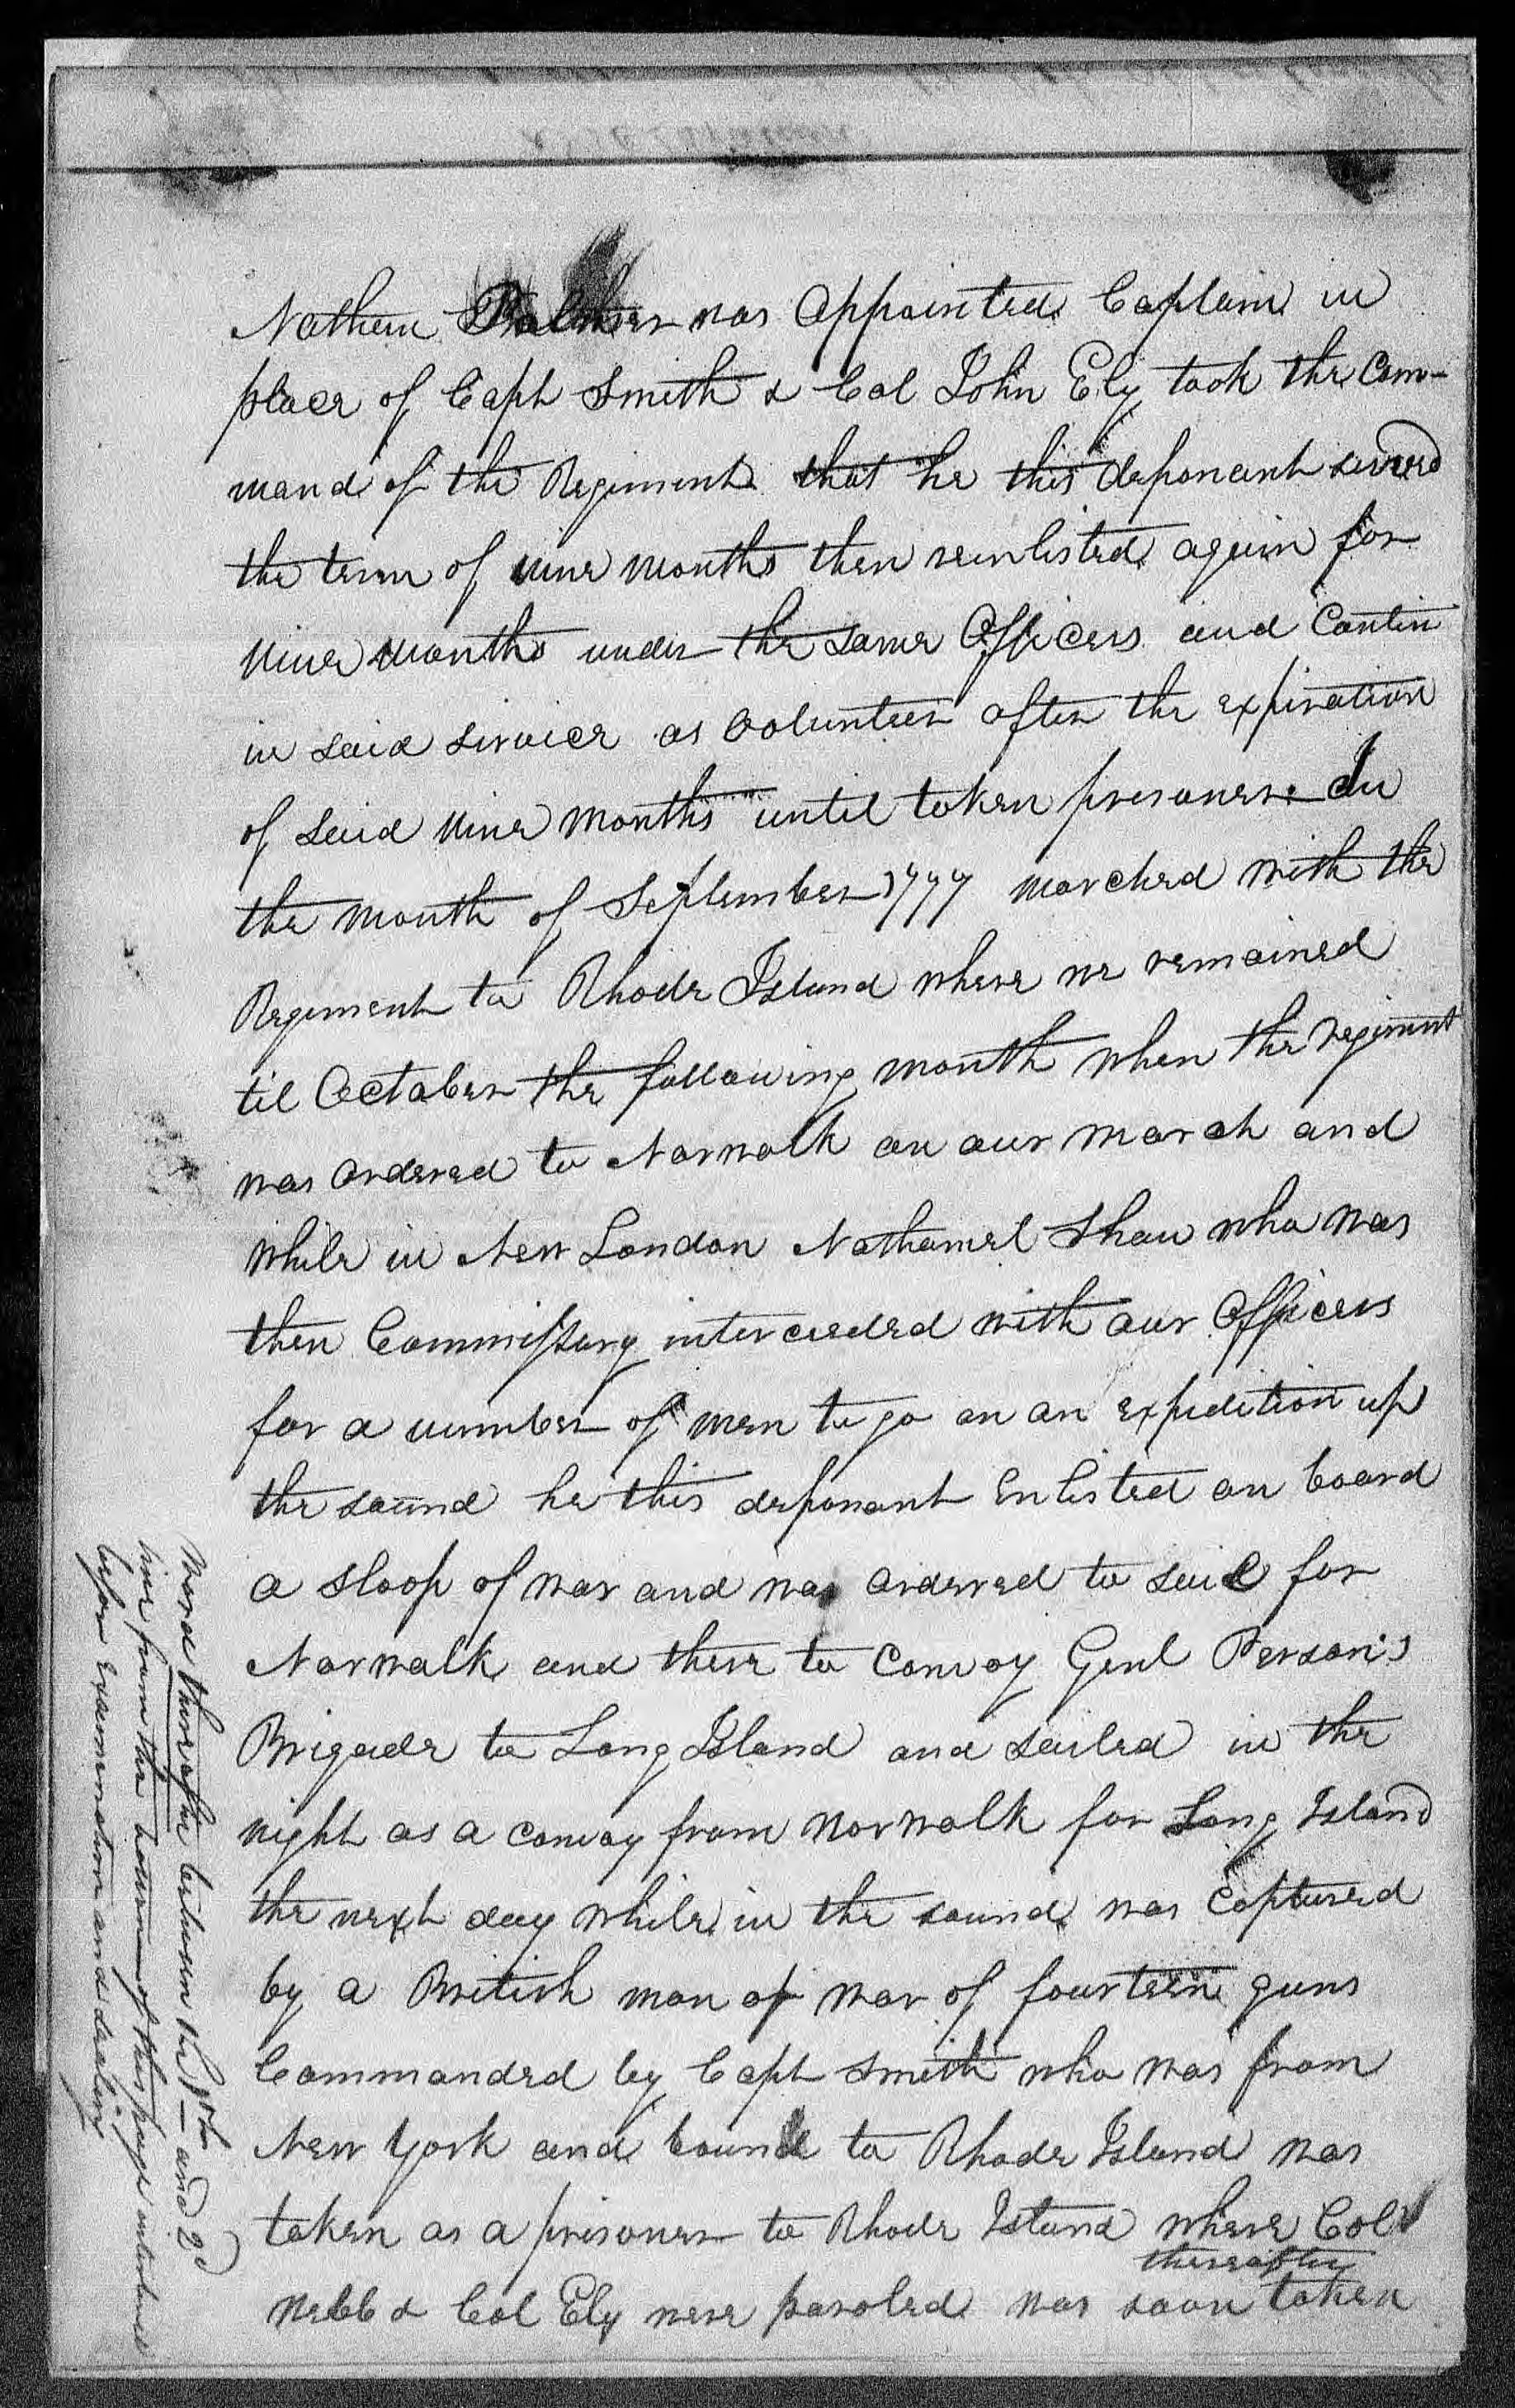 Nathan Palmer was Appointed Captain in
place of Capt Smith & Col John Ely took the Com-
mand of the Regiment that he this deponent served
the term of nine months then reinlisted again for
nine months under the same Officers and Contin
in said service as volunteer after the expiration
of said nine months until taken prisoner. In
the month of September 1777 marched with the
Regiment to Rhode Island where we remained
til October the following month when the regiment
was ordered to Norwalk on our march and
while in New London Nathaniel Shaw who was
then Commissary interceeded with our Officers
for a number of men to go on an expedition up
the sound he this deponent Enlisted on board
a sloop of war and was ordered to sail for
Norwalk and there to Convoy Genl Person's
Brigade to Long Island and sailed in the
night as a convoy from Norwalk for Long Island
the next day while in the sound was Captured
by a British man of war of fourteen guns
Commanded by Capt Smith who was from
New York and bound to Rhode Island was
taken as a prisoner to Rhode Island where Col
thereafter
Webb & Col Ely were paroled was soon taken
Word thereafter between the 1st and 2d
line from the bottom of this page interlined
before examination and sealing